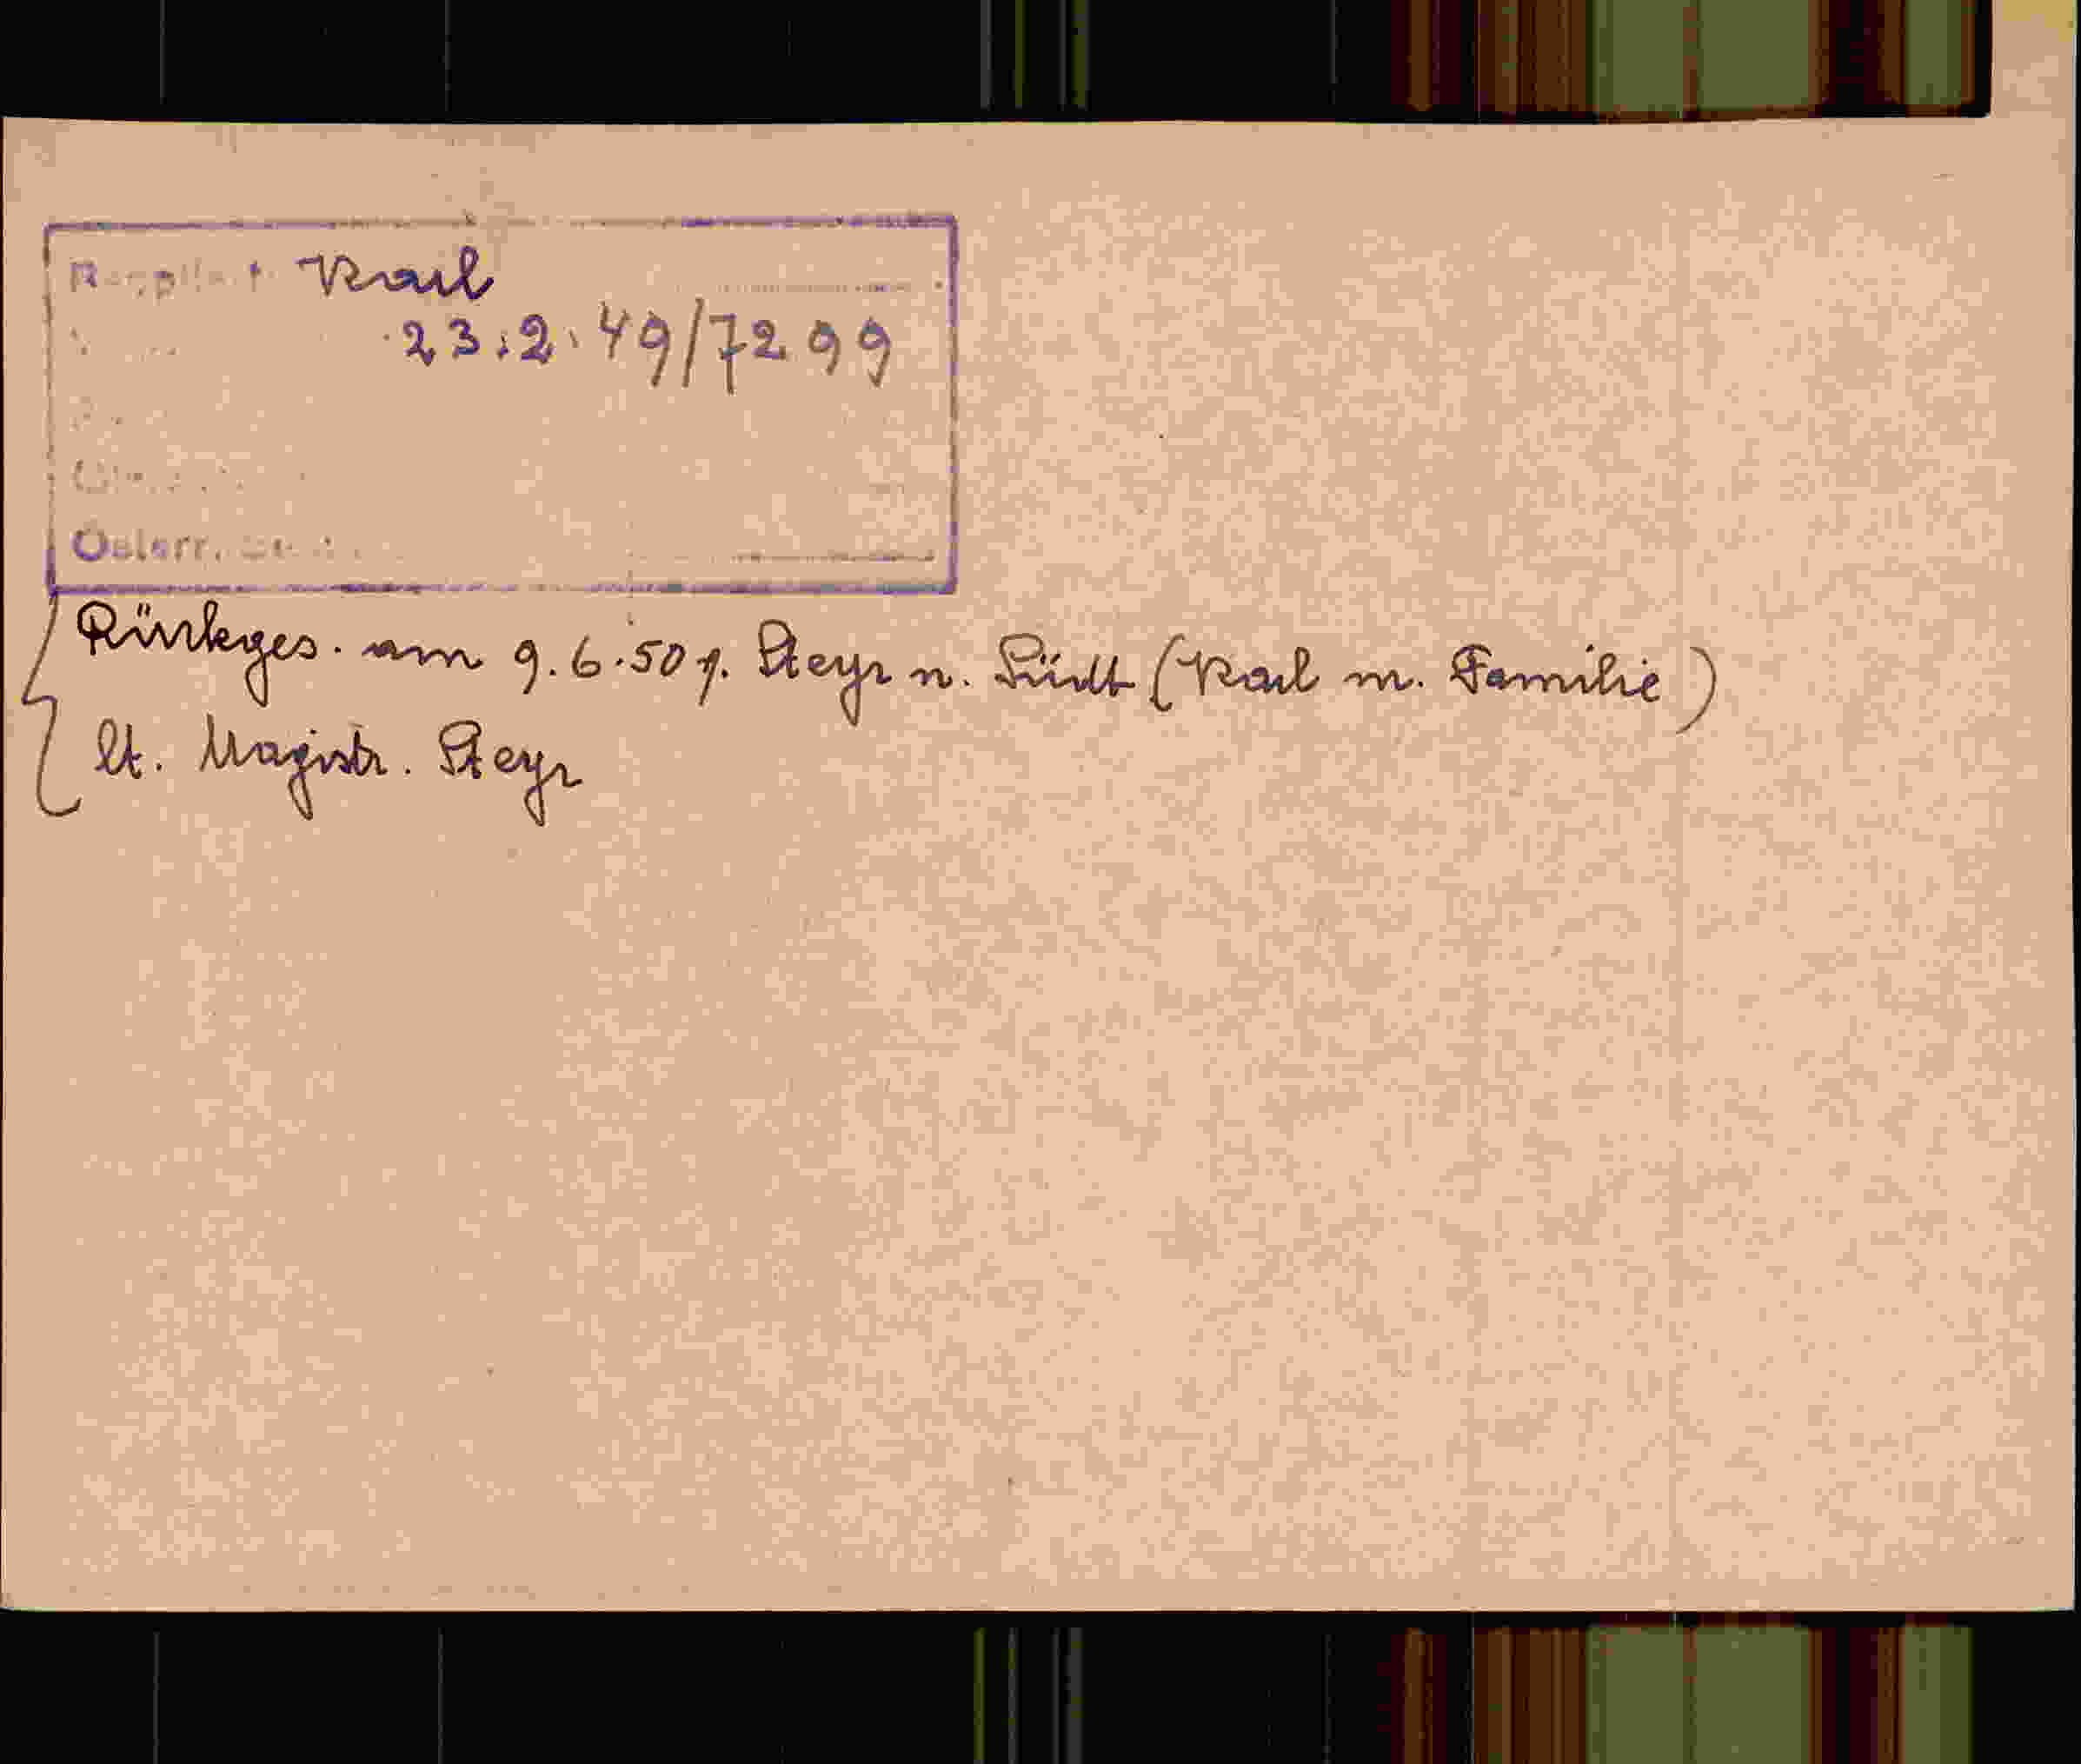 Karl
23.2.49/7299
Österr.
Rückges. am 9.6.50 v. Steyr n. Südt (Karl m. Familie)
lt. Magistr. Steyr